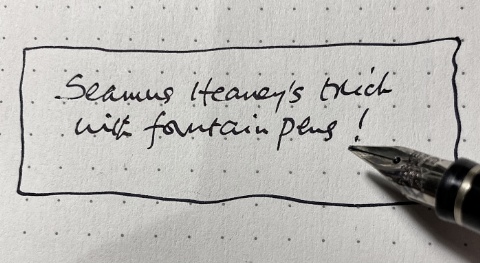 Seamus Heaney's trick
with fountain pens!